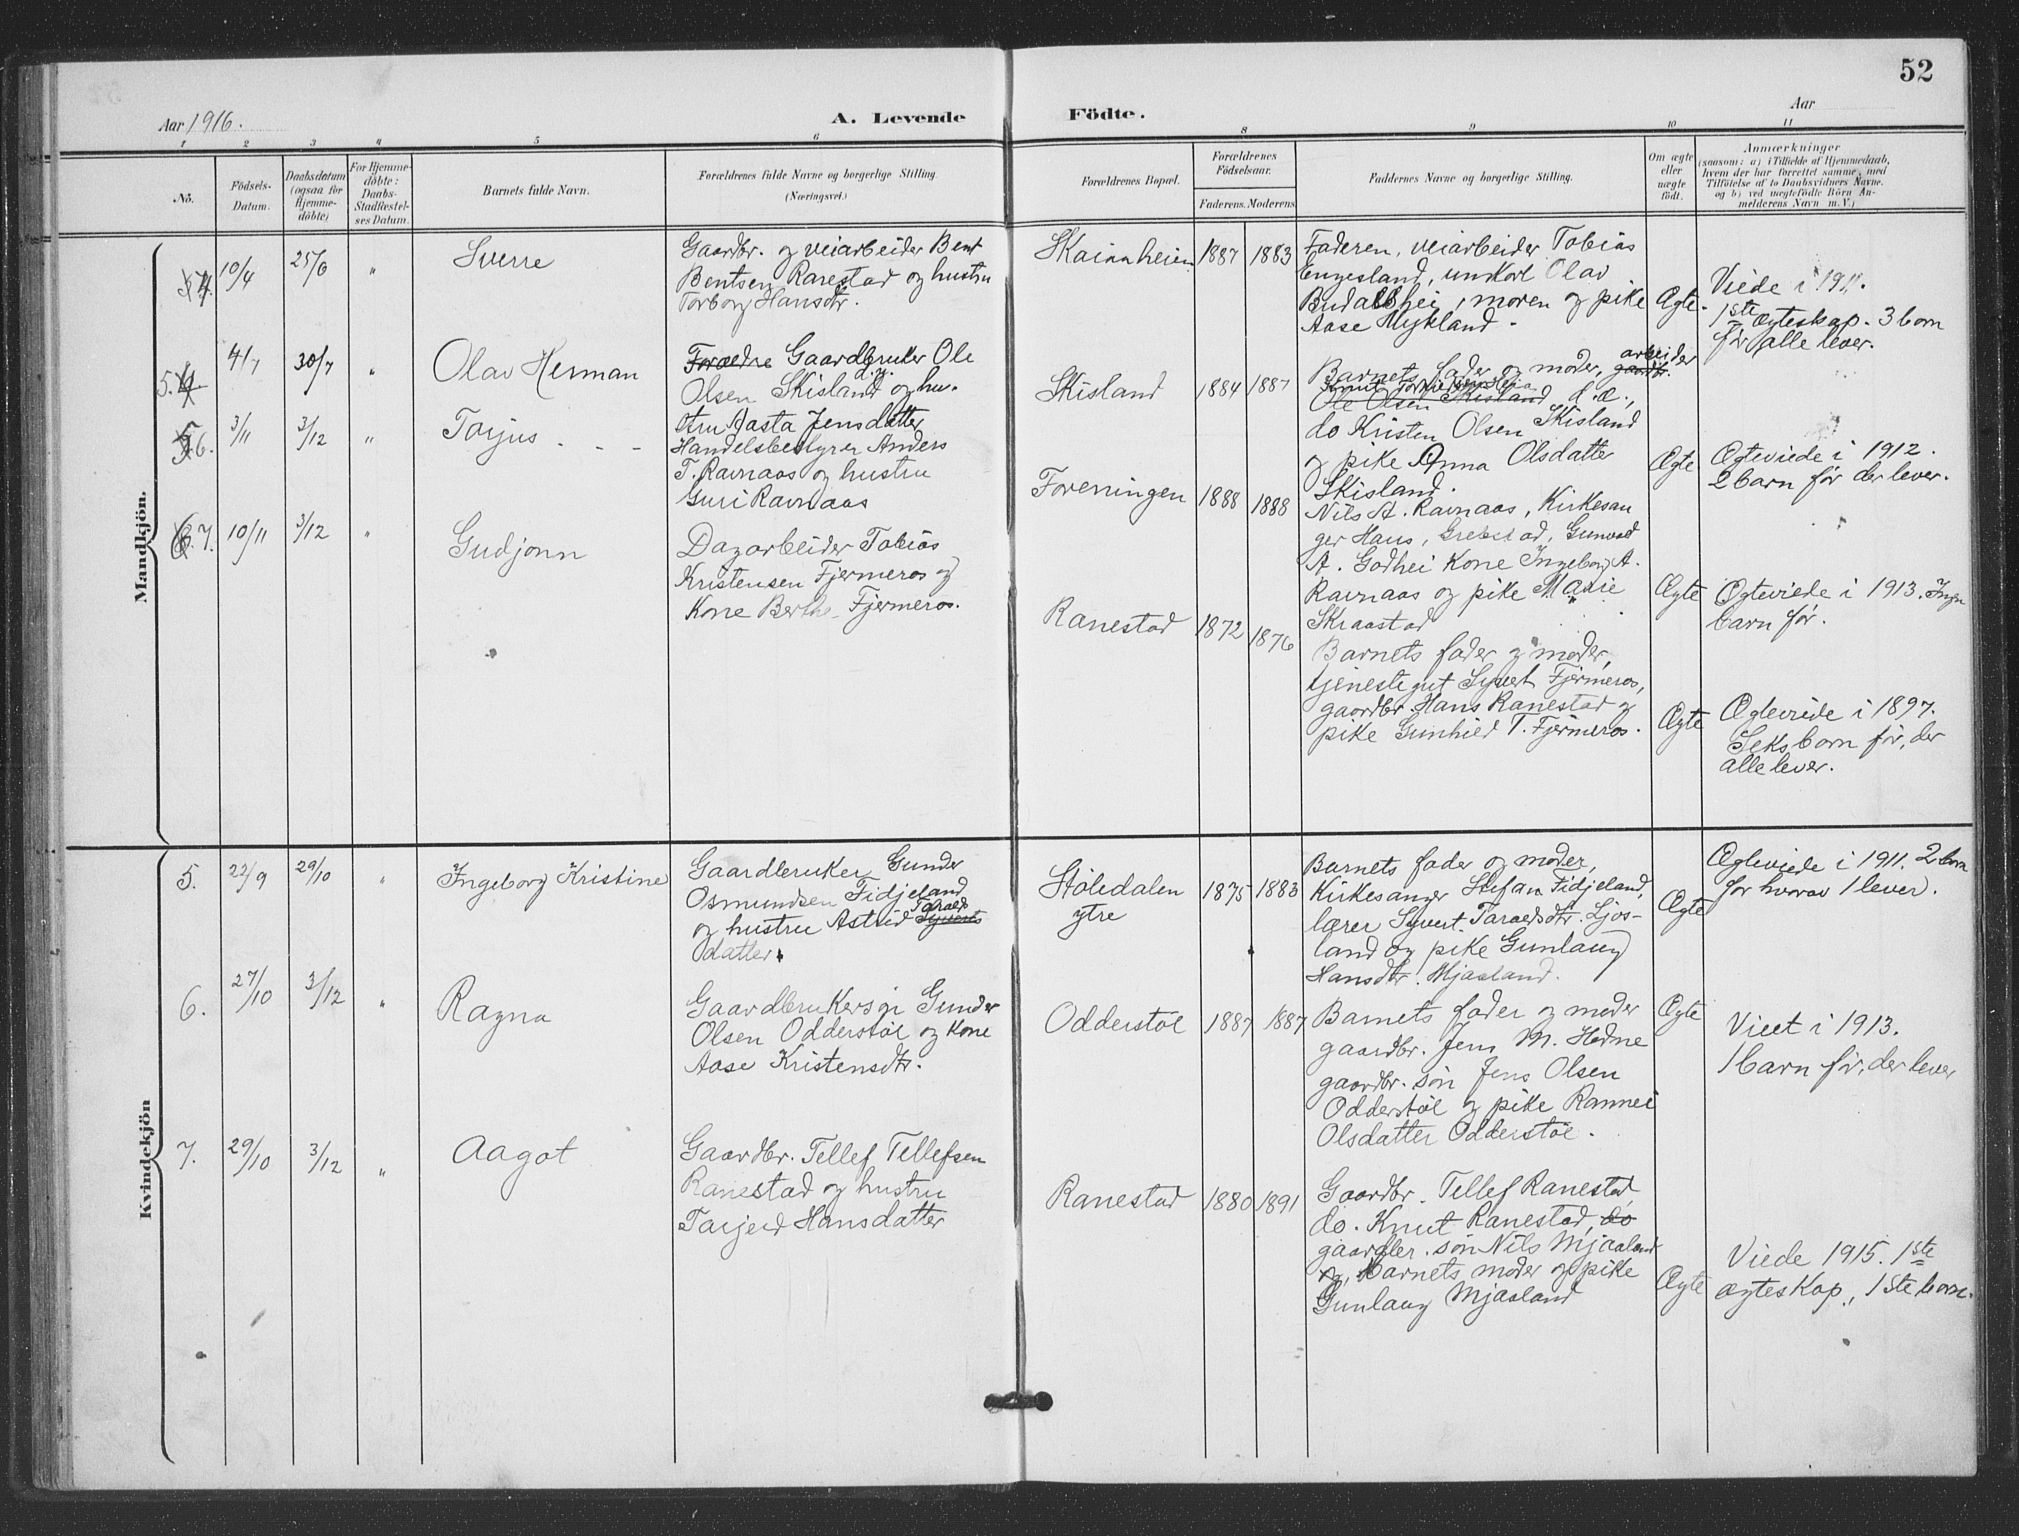 52
Aar 1916.
A. Levende Födte.
Aar
1 2 3 4 5 6 8 9 10 11
No.
Födsels-
Datum.
Daabsdatum
(ogsaa for
Hjemme-
döbte)
For Hjemme-
döbte:
Daabs-
Stadfæstel-
ses Datum.
Barnets fulde Navn.
Forældrenes fulde Navne og borgerlige Stilling
(Næringsvei.)
Forældrenes Bopæl.
Forældrenes
Födselsaar.
Faderens. Moderens.
Faddernes Navne og borgerlige Stilling.
Om ægte
eller
uægte
födt.
Anmærkninger
(saasom: a) i Tilfælde af Hjemmedaab,
hvem der har forrettet samme, med
Tilföielse af to Daabsvidners Navne.
og b) ved uægtefödte Börn An-
melderens Navn m. V.)
Mandkjön.
4. 10/4 25/6 "
Sverre
Gaardbr. og veiarbeider Bent
Bentsen Ranestad og hustru
Torborg Hansdtr.
1887 1883
Faderen, veiarbeider Tobias
Engesland, unkarl Olav
moren og pike
Aase Mykland.
Ægte.
Viede i 1911.
1ste ægteskap. 3 born
før alle lever.
5. 4/7 30/7 "
Olav Herman
Foraedre Gaardbruker Ole
Olsen Skisland d.y. og hu.
Jensdatter
Skisland
1884 1887
Barnets fader og moder, gaardbr. arbeider
Ole Olsen Skisland d.e.,
do Kristen Olsen Skisland
og pike Anna Olsdatter
Skisland.
Ægte
Ægteviede i 1912.
2 barn før der lever.
6. 3/11 3/12 "
Torjus - - -
Handelsbestyrer Anders
T. Ravnaas og hustru
Guri Ravnaas
Foreningen
1888 1888
Nils A. Ravnaas, Kirkesan
ger Hans, Grebstad, Gunvald
A. Godhei Kone Ingeborg A.
Ravnaas og pike Marie
Skraastad
Ægte
Ægteviede i 1913. Ingen
barn før.
7. 10/11 3/12 "
Gudjonn
Dagarbeider Tobias
Kristensen Fjermeros og
Kone Berth. Fjermeros.
Ranestad
1872 1876
Barnets fader og moder,
tjenestegut Syvert Fjermeros,
gaardbr. Hans Ranestad og
pike Gunhild T. Fjermeros.
Ægte
Ægteviede i 1897.
Seks born før, der
alle lever.
Kvindekjön
5. 22/9 29/10 "
Ingeborg Kristine
Gaardbruker Gunder
Osmundsen Fidjeland
og hustru Astrid Syverts Taralds
datter.
Støledalen
ytre
1875 1883
Barnets fader og moder,
Kirkesanger Stefan Fidjeland,
lærer Syvert Taraldsdtr. Ljos-
land og pike Gunlaug
Hansdtr. Mjaaland.
Ægte
Ægteviede i 1911. 2 born
før hvorav 1 lever.
6. 27/10 3/12 "
Ragna
Gaardbrukersøn Gunder
Olsen Odderstøl og kone
Aase Kristensdtr.
Odderstøl
1887 1887
Barnets fader og moder
gaardbr. Jens M. Hodne
gaardbr. søn Jens Olsen
Odderstøl og pike Rannei
Olsdatter Odderstøl.
Ægte
Viet i 1913.
1 barn før, der lever
7. 29/10 3/12 "
Aagot
Gaardbr. Tellef Tellefsen
Ranestad og hustru
Tarjerd Hansdatter
Ranestad
1880 1891
Gaardbr. Tellef Ranestad,
do. Knut Ranestad, do
gaardbr. søn Nils Mjaaland
og, Barnets moder og pike
Gunlaug Mjaaland
Ægte
Viede 1915. 1ste
ægteskap, 1ste born.